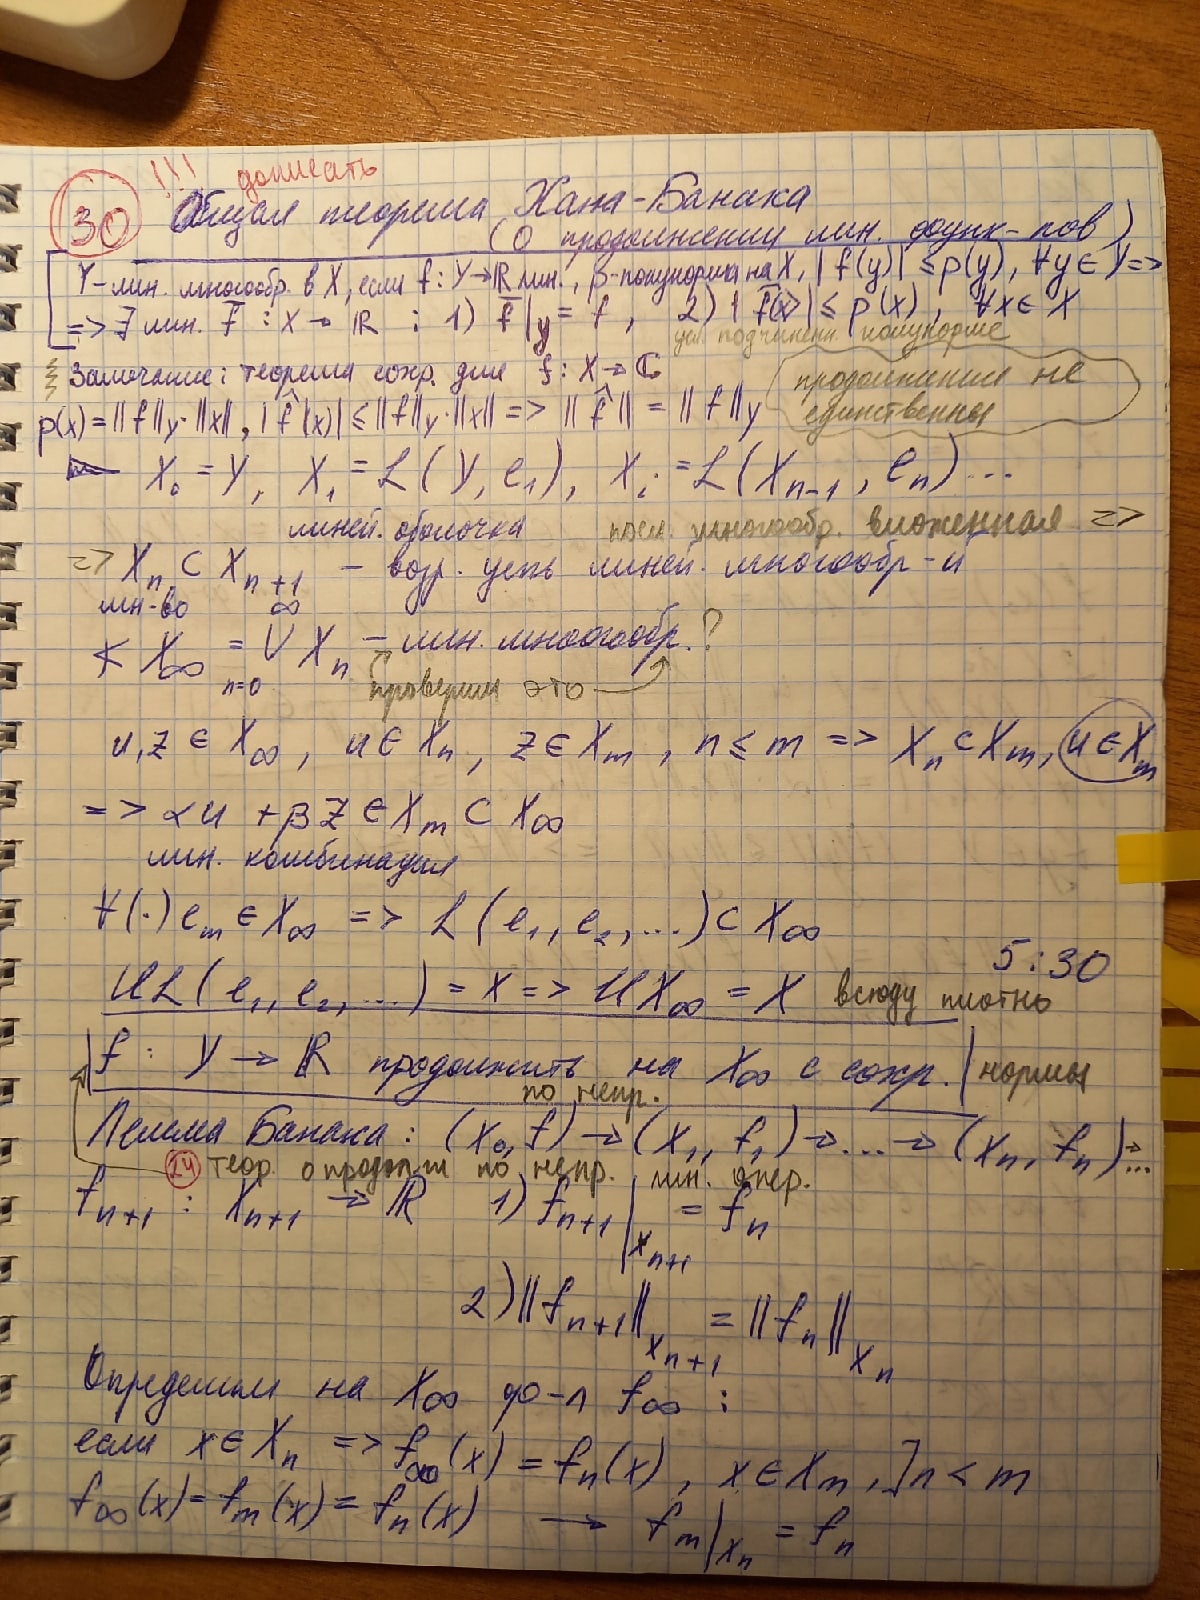 30 !!! дописать
Общая теорема Хана-Банаха
(о продолжении лин. функ-лов)
Y-лин. многообр. в X, если f: Y→ℝ лин., p-полунорма на X, |f(y)| ≤ p(y), ∀y ∈ Y =>
=> ∃ лин. f̄ : X → ℝ : 1) f̄|y = f, 2) |f̂(x)| ≤ p(x), ∀x ∈ X
усл. подчинен. полунорме
Замечание: теорема сохр. для f: X → ℂ
продолжения не
единственны
p(x) = ||f||y · ||x||, |f̂(x)| ≤ ||f||y · ||x|| => ||f̂|| = ||f||y
X₀ = Y, X₁ = ℒ(Y, e₁), Xᵢ = ℒ(Xₙ₋₁, eₙ)...
линей. оболочка посл. многообр. вложенная =>
=> Xₙ ⊂ Xₙ₊₁ – возр. цепь линей. многообр-й
мн-во
X∞ = ∪ₙ₌₀^∞ Xₙ – лин. многообр.?
проверим это
u, z ∈ X∞, u ∈ Xₙ, z ∈ Xm, n ≤ m => Xₙ ⊂ Xm, u ∈ Xm
=> αu + βz ∈ Xm ⊂ X∞
лин. комбинация
∀(·) em ∈ X∞ => ℒ(e₁, e₂, ...) ⊂ X∞
5:30
Uℒ(e₁, e₂, ...) = X => UX∞ = X всюду плотно
f: Y → ℝ продолжить на X∞ с сохр. | нормы
по непр.
Лемма Банаха: (X₀, f) → (X₁, f₁) → ... → (Xₙ, fₙ) → ...
24 теор. о продолж по непр. лин. опер.
fₙ₊₁ : Xₙ₊₁ → ℝ 1) fₙ₊₁|Xₙ₊₁ = fₙ
2) ||fₙ₊₁||Xₙ₊₁ = ||fₙ||Xₙ
Определим на X∞ ф-л f∞ :
если x ∈ Xₙ => f∞(x) = fₙ(x), x ∈ Xm, ]n < m
f∞(x) = fm(x) = fₙ(x) → fm|Xₙ = fₙ